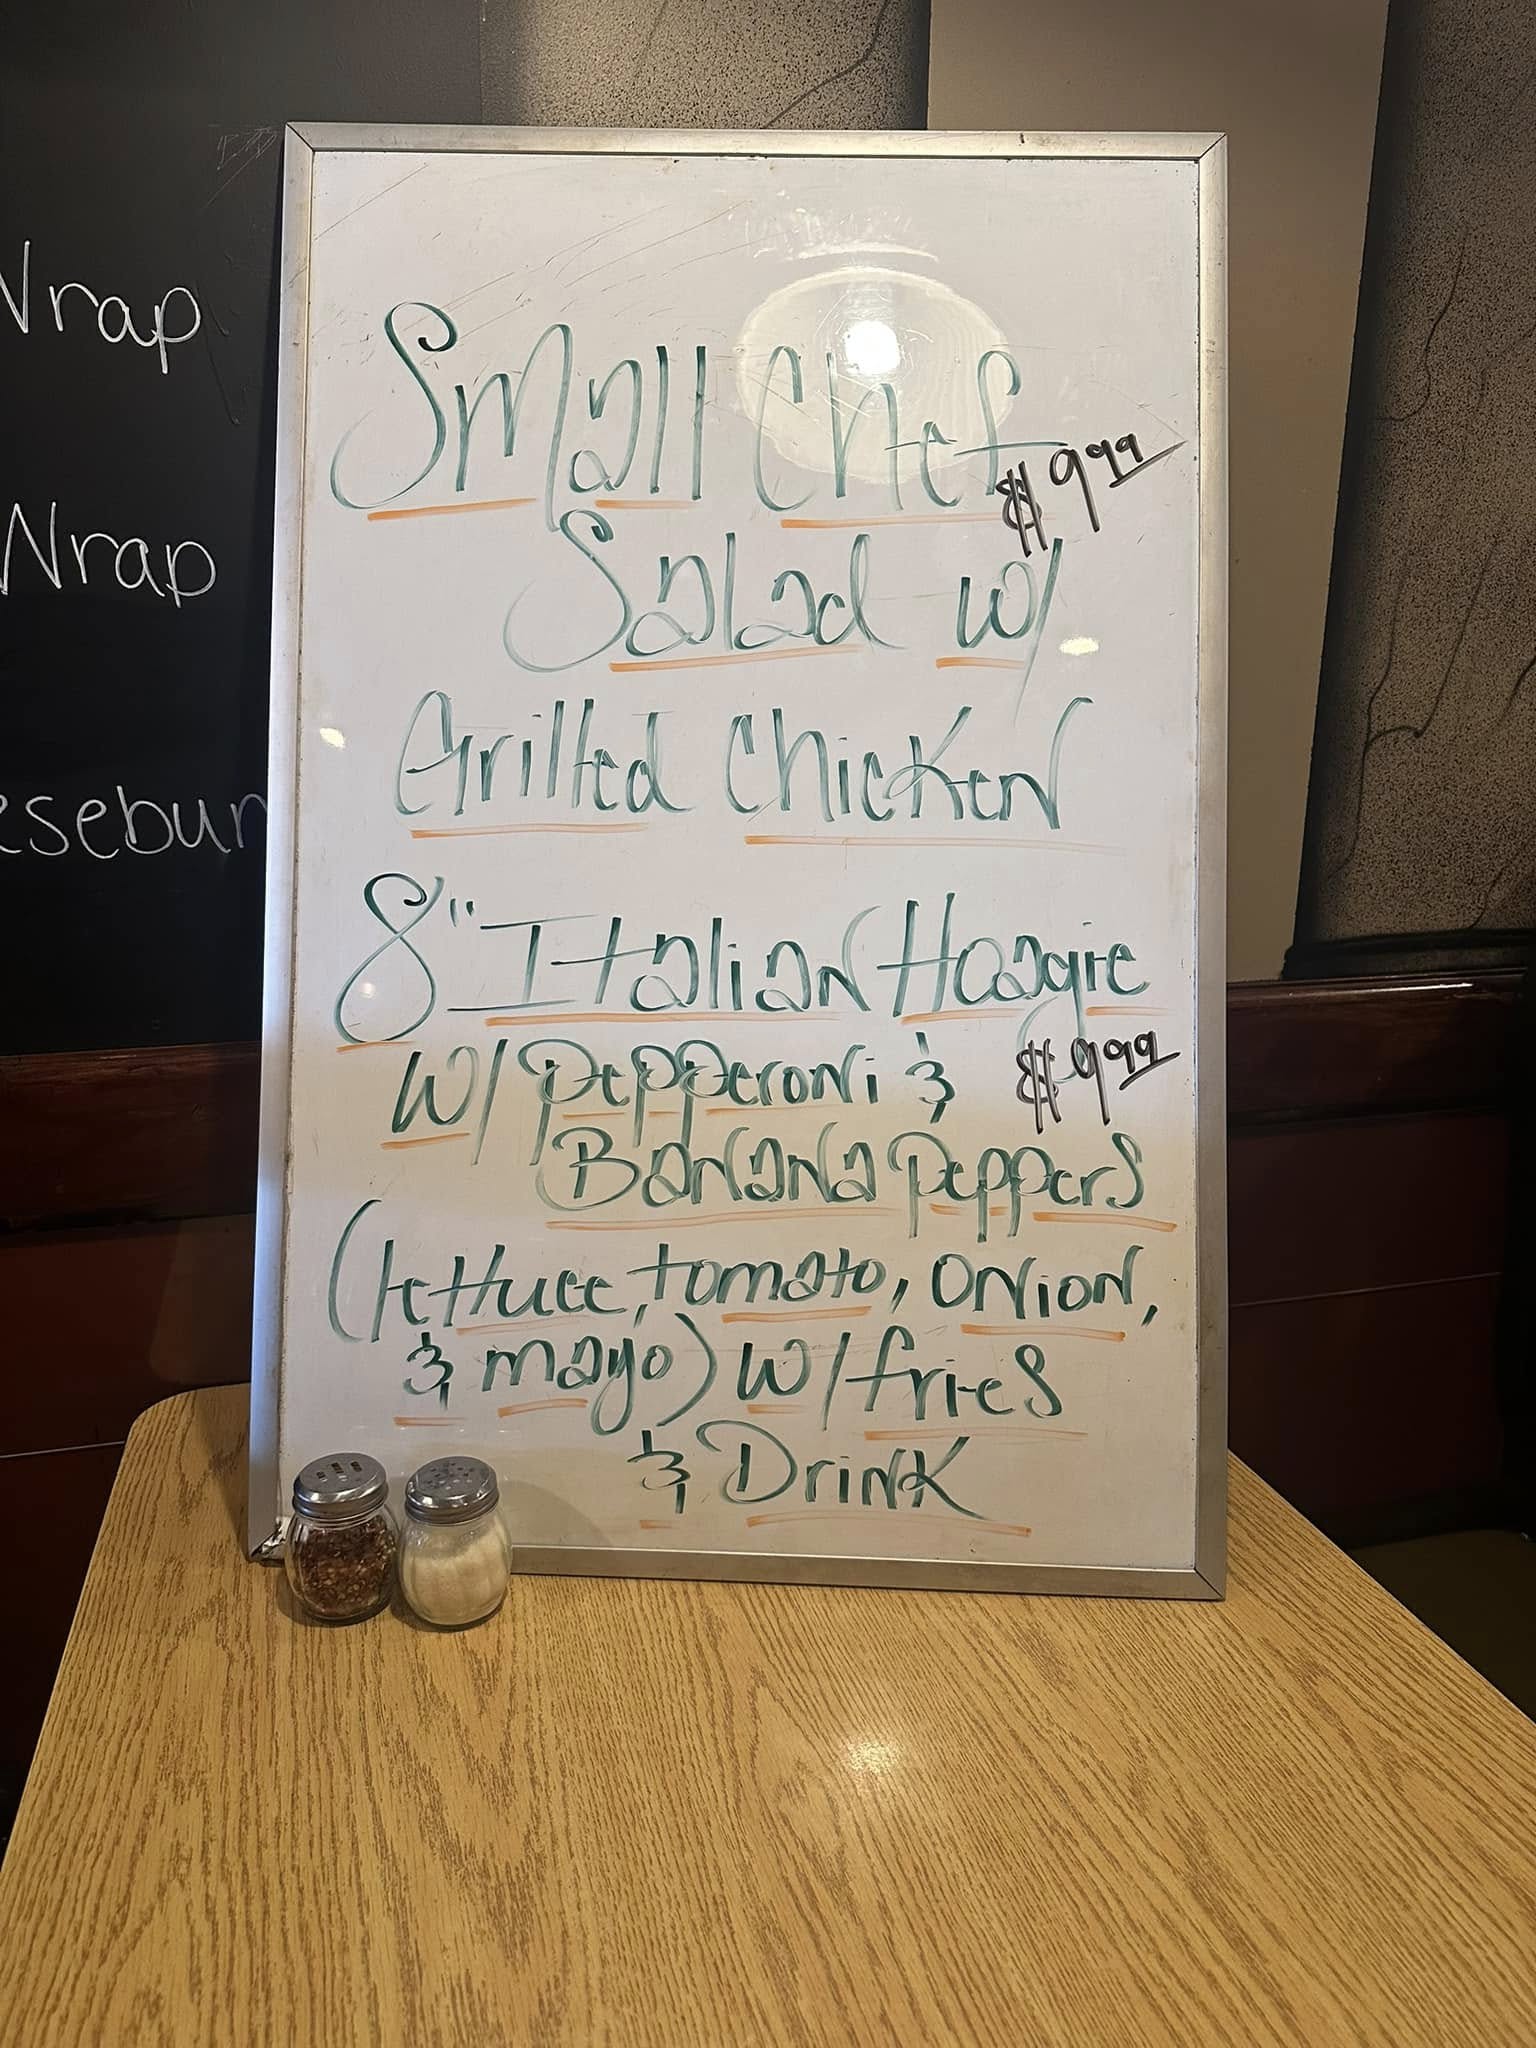 Wrap
Wrap
esebur
Small Chef
$9.99
Salad w/
Grilled Chicken
8" Italian Hoagie
w/ Pepperoni &
$9.99
Banana Peppers
(lettuce, tomato, onion,
& mayo) w/ fries
& Drink